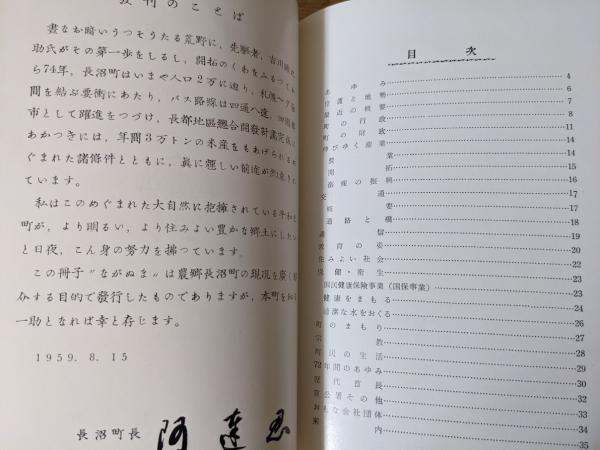 発刊のことば
昼なお暗いうつそうたる荒野に，先駆者，吉川
助氏がその第一歩をしるし，開拓のくわをふるつて
ら74年，長沼町はいまや人口2万に迫り，札幌
間を結ぶ要衝にあたり，バス路線は四通八達，
市として躍進をつづけ，長都地區總合開發計畫完成の
あかつきには，年間3万トンの米産をもあげられる
ぐまれた諸條件とともに，眞に輝しい前途が
ています。
私はこのめぐまれた大自然に抱擁されている平和な
町が，より明るい，より住みよい豊かな郷土にしたい
と日夜，こん身の努力を拂つています。
この冊子〝ながぬま〟は農郷長沼町の現況を
する目的で發行したものでありますが，本町を知る
一助となれば幸と存じます。
1959. 8. 15
長沼町長
目次
あゆみ 4
位置と地勢 6
最近の概要 7
町の行政 8
町の財政 11
伸びゆく産業 14
農業 14
開拓 14
畜産の振興 15
交通 16
概要 17
道路と橋 17
通信 18
教育の姿 19
住みよい社会 20
保健・衛生 22
国民健康保険事業(国保事業) 23
健康をまもる 23
清潔な水をおくる 24
町のまもり 26
宗教 27
町民の生活 28
72年間のあゆみ 29
歴代首長 30
官公署その他 31
おもな会社団体 32
案内 33
35